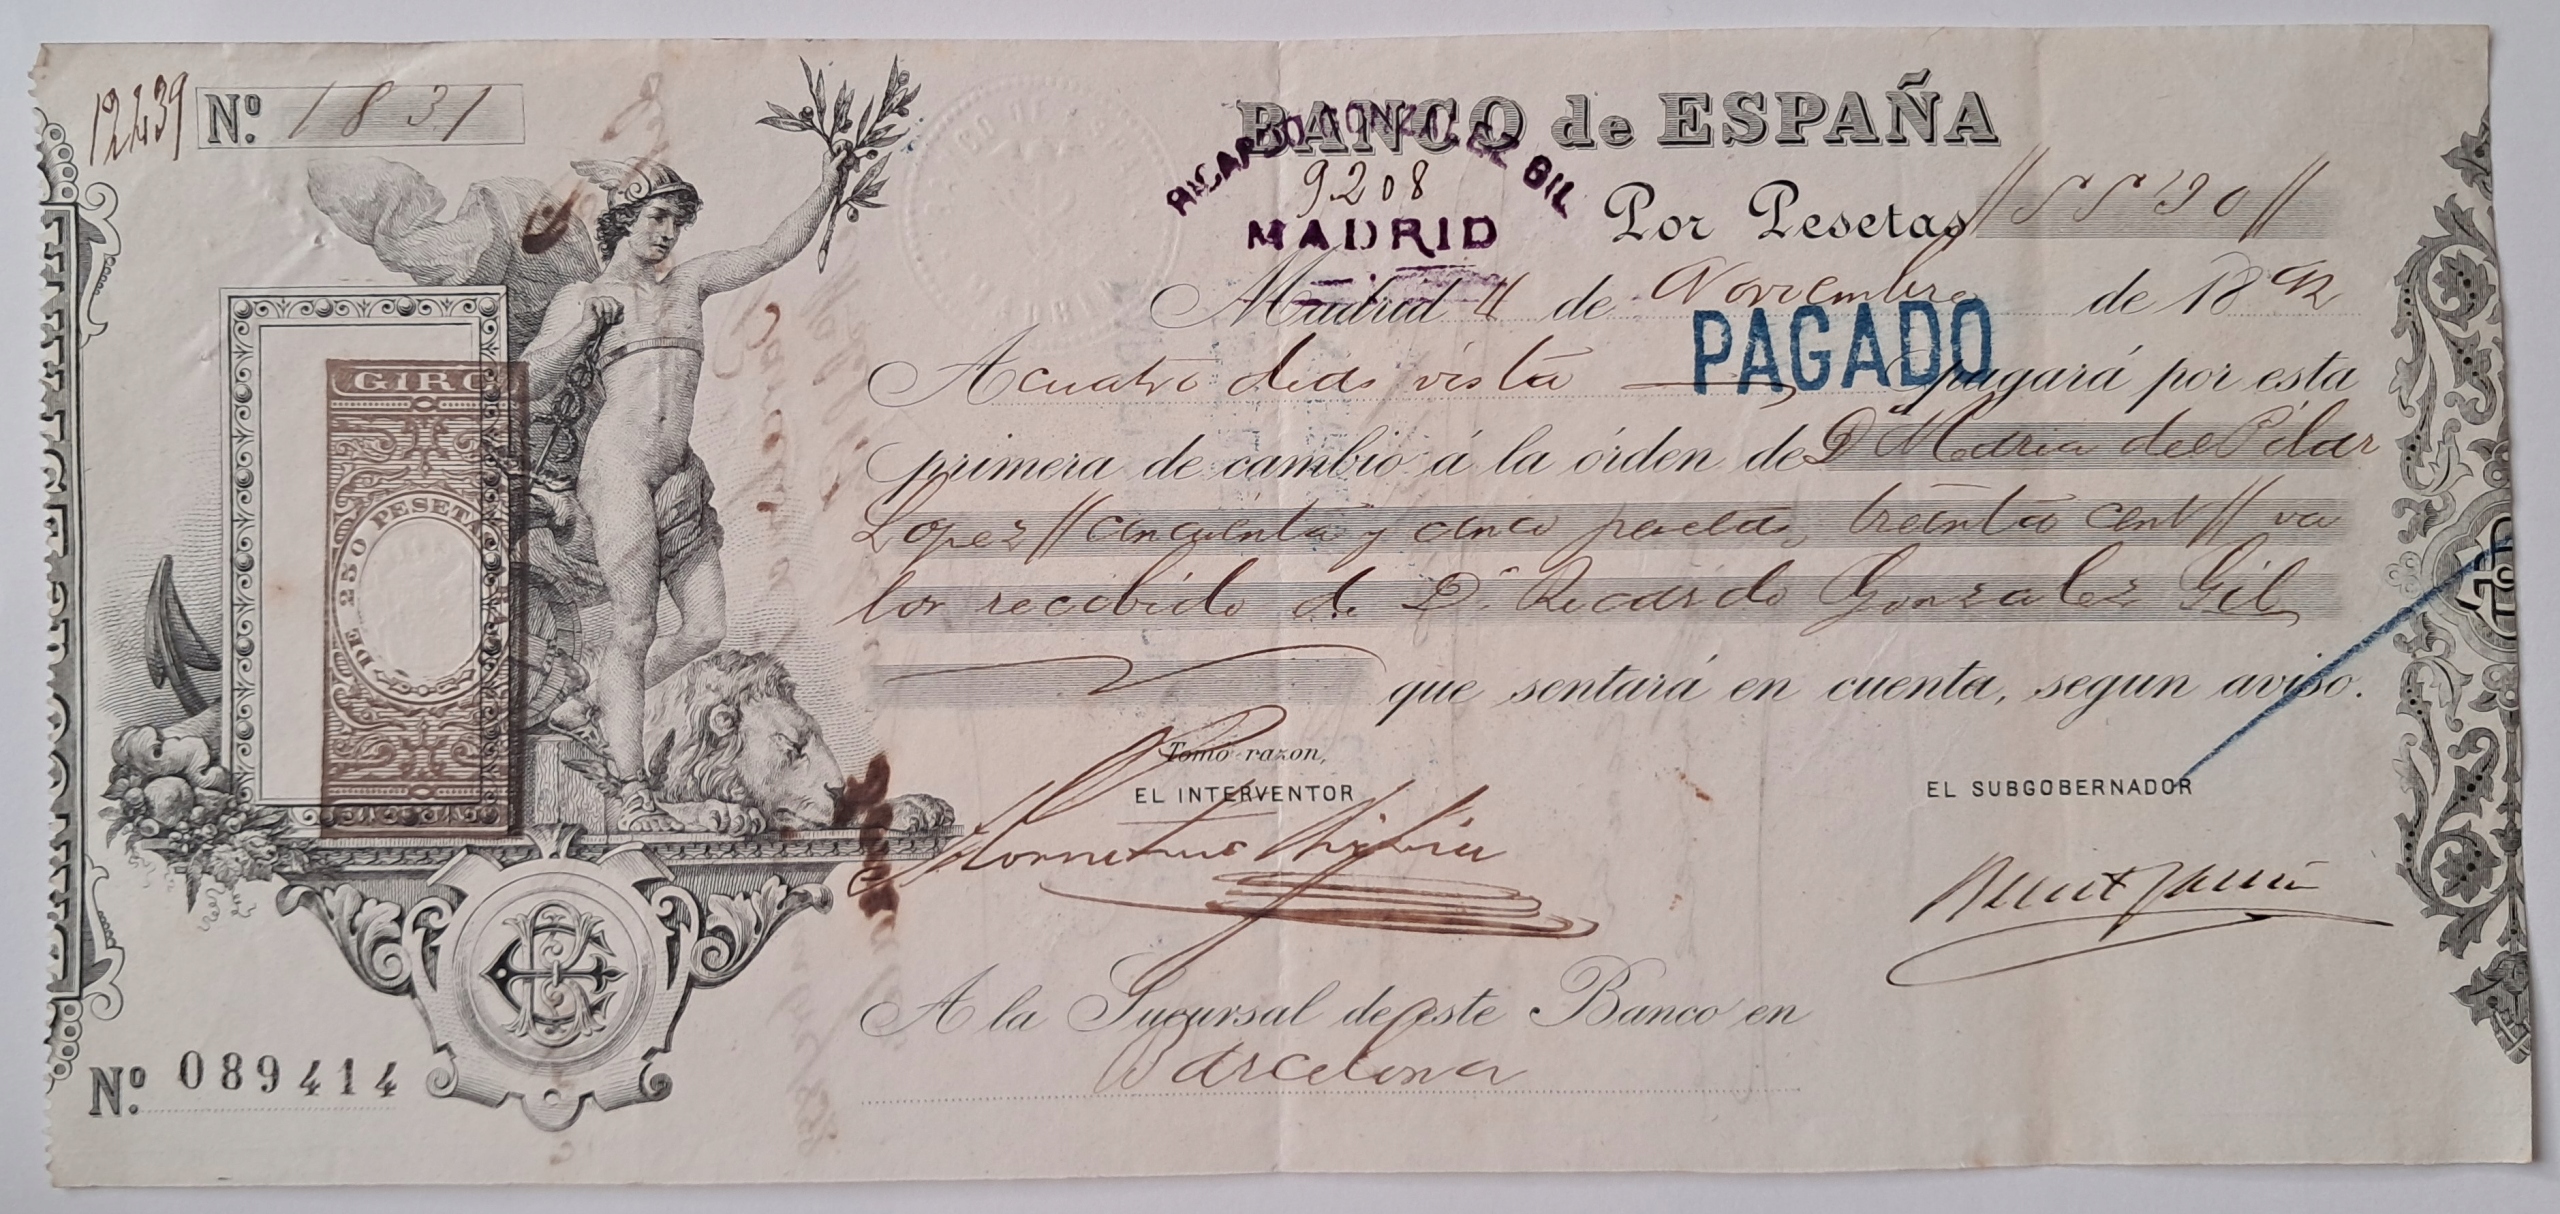 12439
Nº. 1831
BANCO de ESPAÑA
RICARDO GONZALEZ GIL
9208
MADRID
Por Pesetas // 55'30 //
Madrid 4 de Noviembre de 1892
PAGADO
A cuatro dias vista pagará por esta
primera de cambio á la órden de Dª Maria del Pilar
Lopez // cincuenta y cinco pesetas, treinta cent // va
lor recibido de D. Ricardo Gonzalez Gil
que sentará en cuenta, segun aviso.
GIRO
DE 250 PESETA
Tomó razon,
EL INTERVENTOR
EL SUBGOBERNADOR
A la Sucursal de este Banco en
Barcelona
Nº. 089414